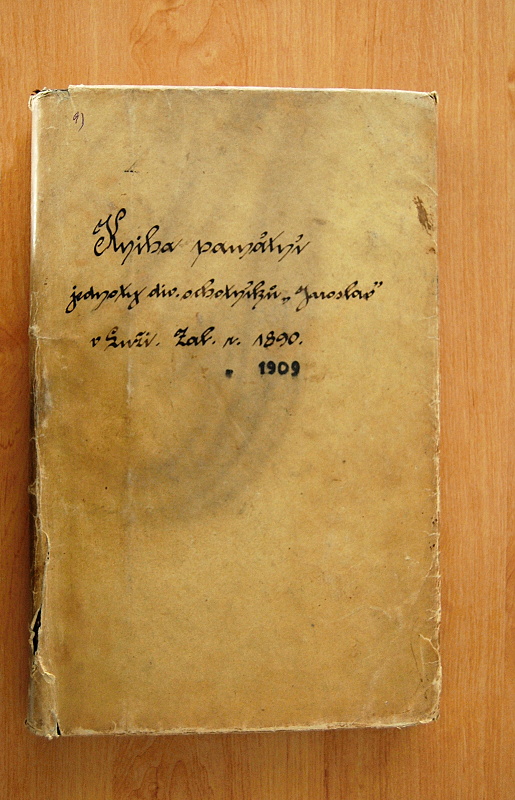 9)
Kniha památní
jednoty div. ochotníků „Jaroslav"
v Zuři. Zal. r. 1890.
1909